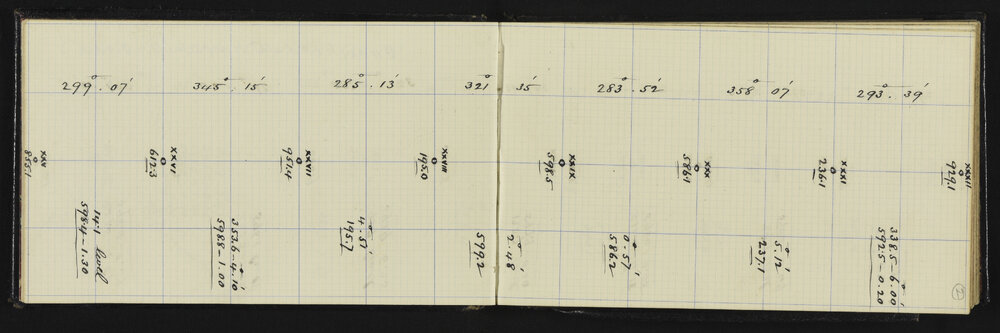 299° . 07'
345° . 15'
285° . 13'
321° 35'
283° . 52'
358° 07'
293° . 39'
XXV
855.1
XXVI
612.3
XXVII
951.4
XXVIII
195.0
XXIX
598.5
XXX
586.1
XXXI
236.1
XXXII
929.1
141 level
598.4 – 1.30
353.6 – 4°.10'
598.8 – 1.00
4°.51'
195.7
2°.48'
599.2
0°.57'
586.2
5°.12'
237.1
338.5 – 6°.00'
592.5 – 0.20